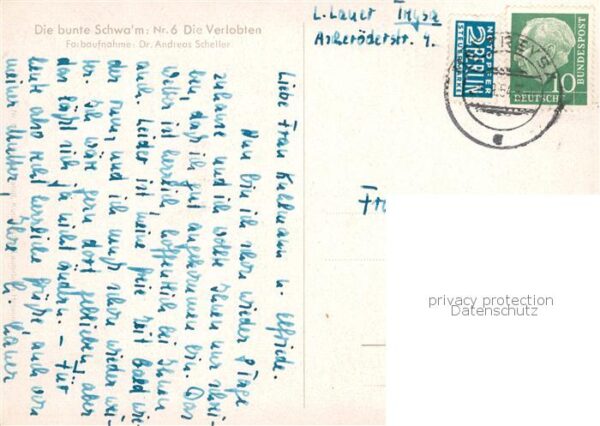 Die bunte Schwalm: Nr. 6 Die Verlobten
Farbaufnahme: Dr. Andreas Scheller
L. Lauer Treysa
Ascheröderstr. 4.
NOTOPFER
2 BERLIN
STEUERMARKE
DEUTSCHE
BUNDESPOST
10
TREYSA
Liebe Frau Kuhlmann u. Elfriede.
Nun bin ich schon wieder 8 Tage
zuhause und ich wollte Ihnen nur schrei-
ben, daß ich gut angekommen bin. Das
Wetter ist herrlich hoffentlich bei Ihnen
auch. Leider ist meine freie Zeit bald wie-
der rum, und ich muß schon wieder wei-
ter. Ich wäre gern dort geblieben, aber
das läßt sich ja nicht ändern. – Für
heute also recht herzliche Grüße auch von
meiner Mutter, Ihre
L. Lauer
Fr
privacy protection
Datenschutz